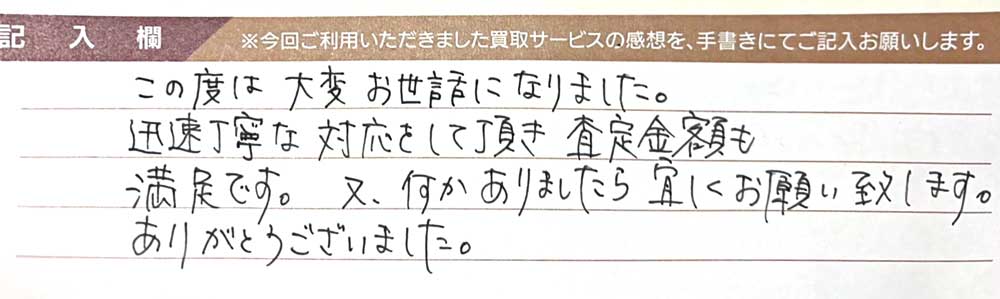 記入欄 ※今回ご利用いただきました買取サービスの感想を、手書きにてご記入お願いします。
この度は大変お世話になりました。
迅速丁寧な対応をして頂き査定金額も
満足です。又、何かありましたら宜しくお願い致します。
ありがとうございました。